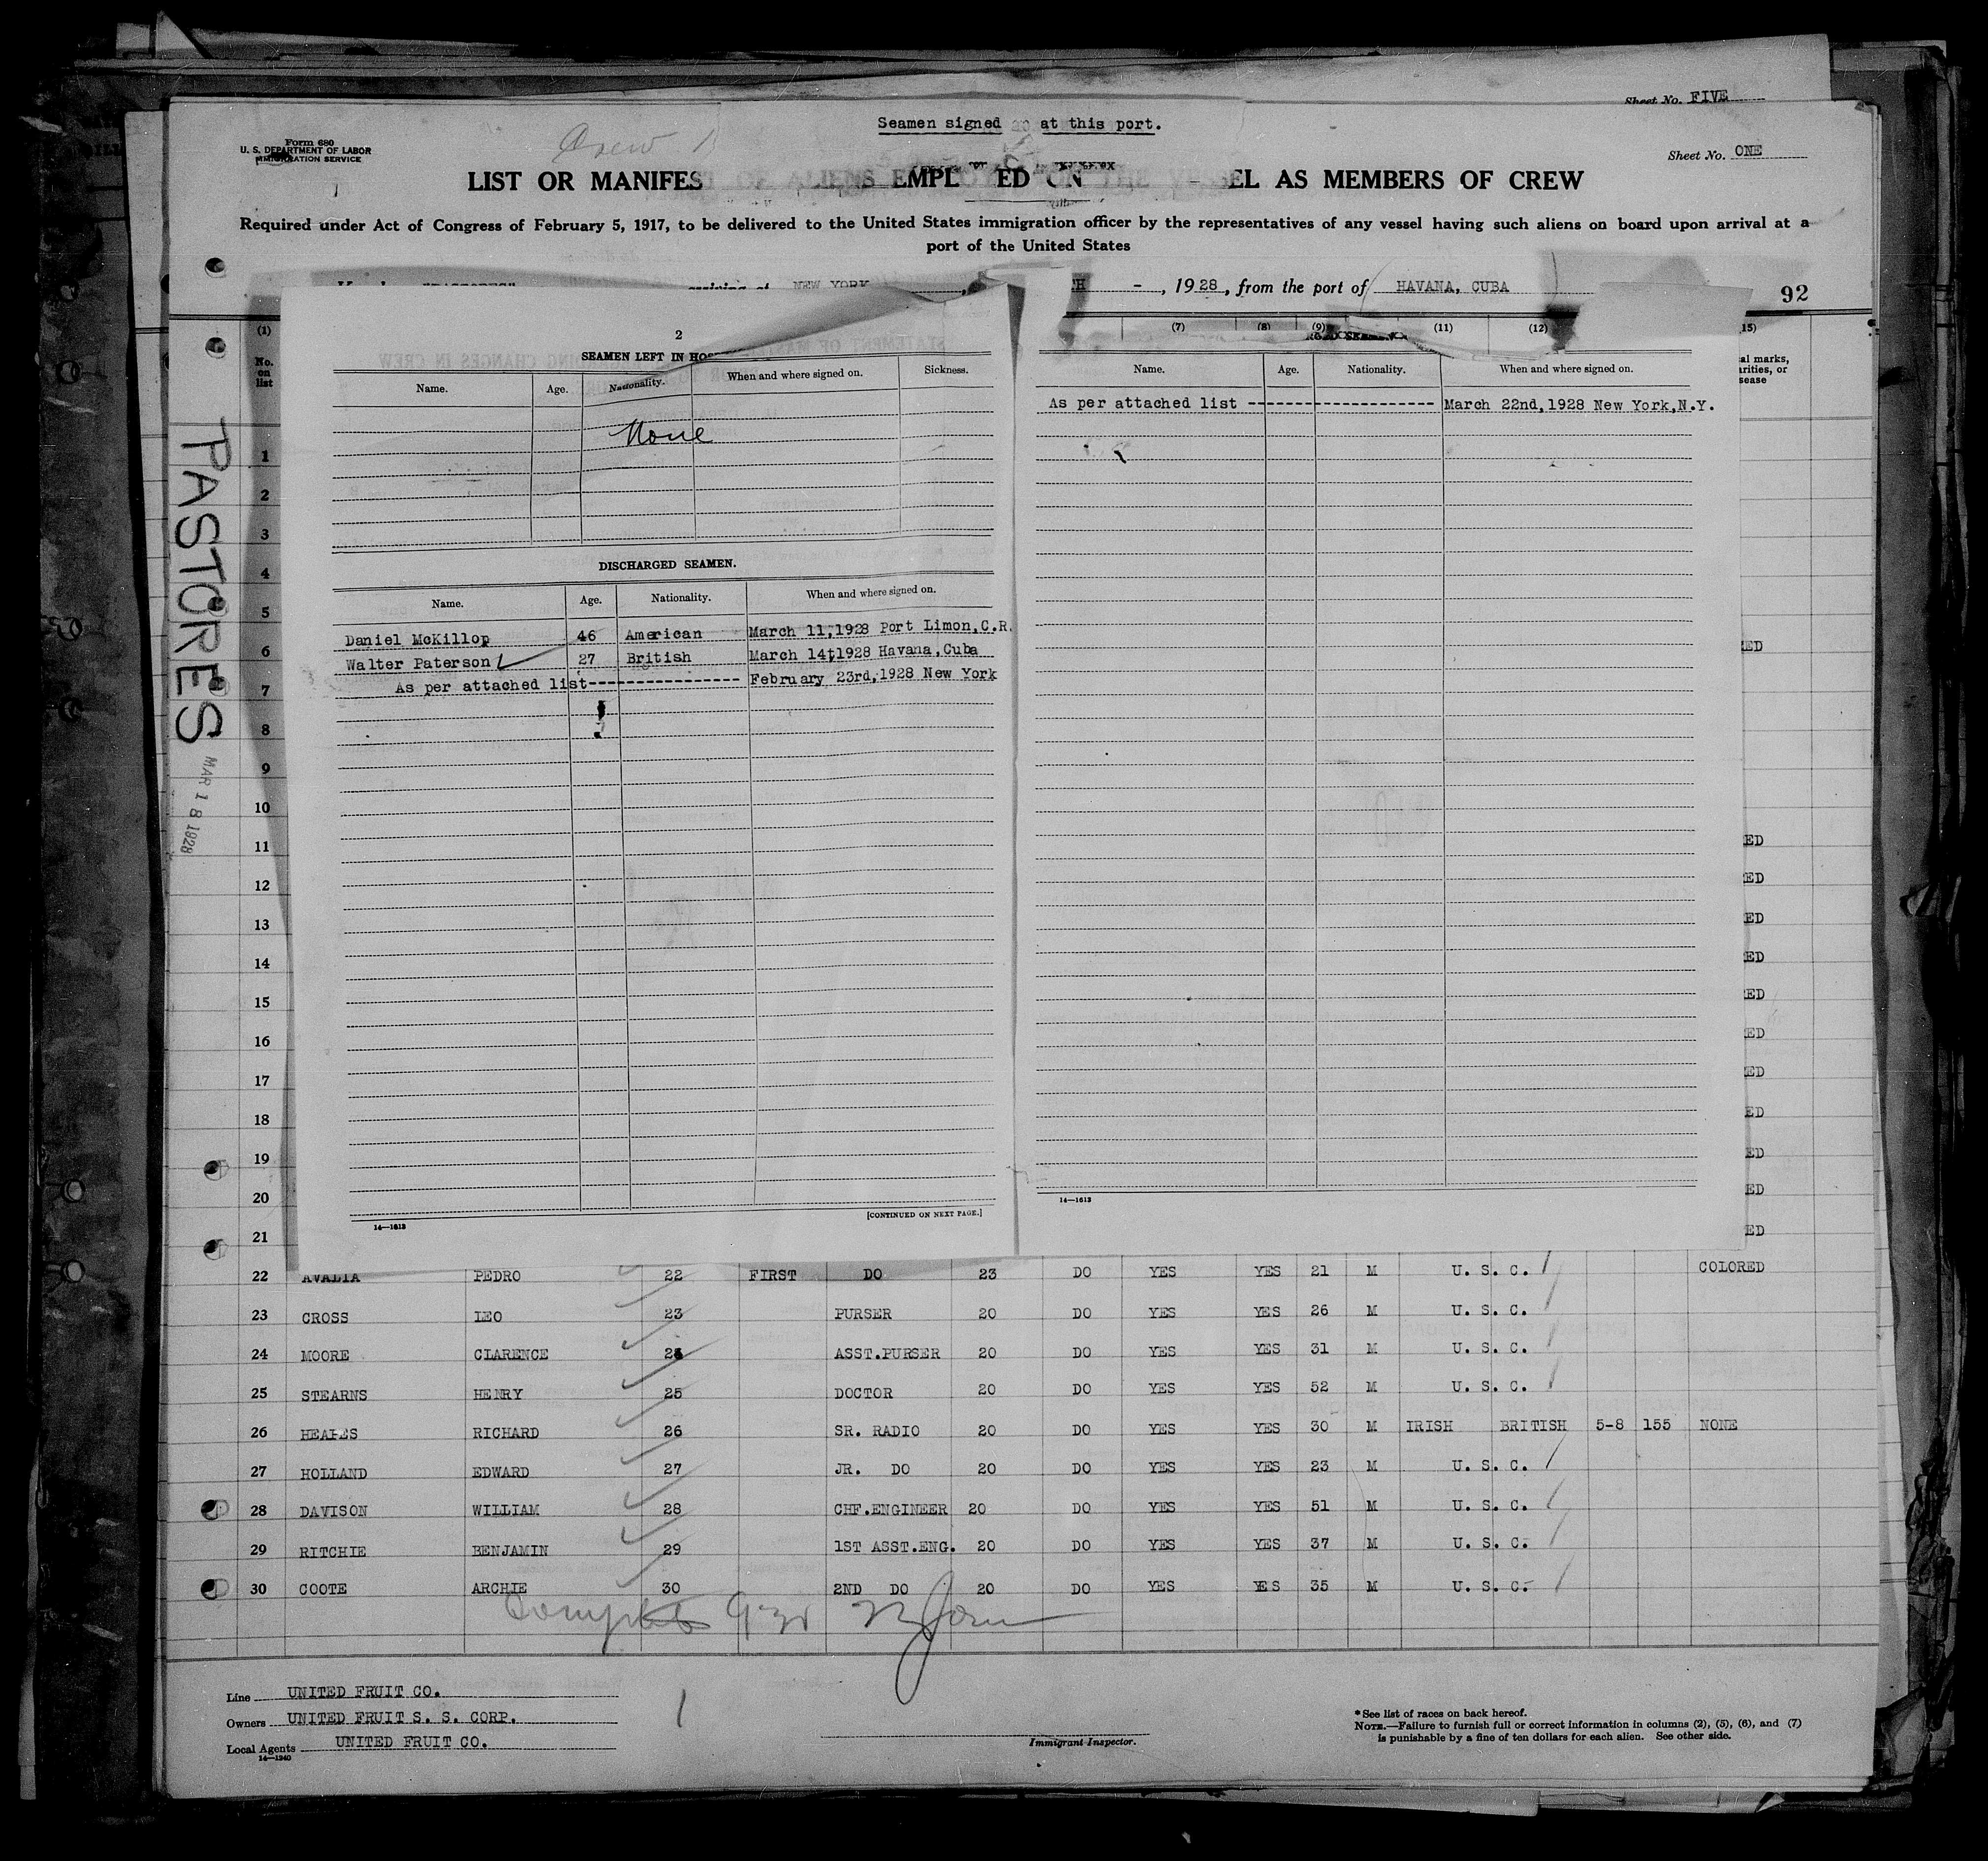 Sheet No. FIVE
Seamen signed on at this port.
Form 680
U. S. DEPARTMENT OF LABOR
IMMIGRATION SERVICE
Sheet No. ONE
LIST OR MANIFEST OF ALIENS EMPLOYED ON THE VESSEL AS MEMBERS OF CREW
Required under Act of Congress of February 5, 1917, to be delivered to the United States immigration officer by the representatives of any vessel having such aliens on board upon arrival at a
port of the United States
arriving at NEW YORK
- , 1928, from the port of HAVANA, CUBA
92
(1) (7) (8) (9) (11) (12) (15)
No. on list
PASTORES
MAR 18 1928
2
SEAMEN LEFT IN
Name. Age. Nationality. When and where signed on. Sickness.
None
DISCHARGED SEAMEN.
Name. Age. Nationality. When and where signed on.
Daniel McKillop 46 American March 11,1928 Port Limon,C.R.
Walter Paterson 27 British March 14,1928 Havana,Cuba
As per attached list---------------- February 23rd,1928 New York
14—1613
[CONTINUED ON NEXT PAGE.]
Name. Age. Nationality. When and where signed on.
As per attached list -------------------- March 22nd,1928 New York,N.Y.
14—1613
al marks,
arities, or
sease
1
2
3
4
5
6 ED
7
8
9
10
11 ED
12 ED
13 ED
14 ED
15 ED
16 ED
17 ED
18 ED
19 ED
20 ED
21 ED
22 AVALIA PEDRO 22 FIRST DO 23 DO YES YES 21 M U. S. C. COLORED
23 CROSS LEO 23 PURSER 20 DO YES YES 26 M U. S. C.
24 MOORE CLARENCE 24 ASST.PURSER 20 DO YES YES 31 M U. S. C.
25 STEARNS HENRY 25 DOCTOR 20 DO YES YES 52 M U. S. C.
26 RICHARD 26 SR. RADIO 20 DO YES YES 30 M IRISH BRITISH 5-8 155 NONE
27 HOLLAND EDWARD 27 JR. DO 20 DO YES YES 23 M U. S. C.
28 DAVISON WILLIAM 28 CHF.ENGINEER 20 DO YES YES 51 M U. S. C.
29 RITCHIE BENJAMIN 29 1ST ASST.ENG. 20 DO YES YES 37 M U. S. C.
30 COOTE ARCHIE 30 2ND DO 20 DO YES YES 35 M U. S. C.
Line UNITED FRUIT CO.
Owners UNITED FRUIT S. S. CORP.
Local Agents UNITED FRUIT CO.
14—1240
Immigrant Inspector.
*See list of races on back hereof.
NOTE.—Failure to furnish full or correct information in columns (2), (5), (6), and (7)
is punishable by a fine of ten dollars for each alien. See other side.